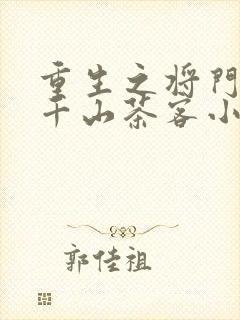 重生之将门
千山茶客小
郭佳祖